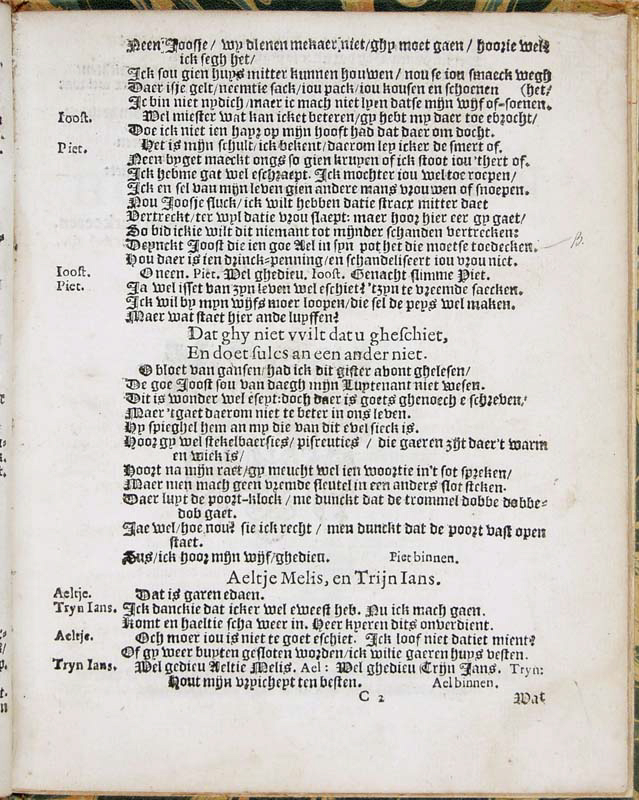 Neen Joosje / wy dienen mekaer niet / ghy moet gaen / hoorje wel
ick segh het /
Ick sou gien huys mitter kunnen houwen / nou se jou smaeck wegh
Daer isje gelt / neemtje sack / jou pack / jou kousen en schoenen (het /
Ic bin niet nydich / maer ic mach niet lyen datse mijn wijf of-soenen.
Ioost. Wel miester wat kan icket beteren / gy hebt my daer toe ebrocht /
Doe ick niet ien hayr op mijn hooft had dat daer om docht.
Piet. Het is mijn schult / ick bekent / daerom ley icker de smert of.
Neen byget maeckt ongs so gien kruyen of ick stoot iou 'thert of.
Ick hebme gat wel eschraept. Ick mochter iou wel toe roepen /
Ick en sel van mijn leven gien andere mans vrouwen of snoepen.
Nou Joosje sluck / ick wilt hebben datje stracx mitter daet
Vertreckt / ter wyl datje vrou slaept: maer hoor hier eer gy gaet /
So bid ickje wilt dit niemant tot mijnder schanden vertrecken:
Deynckt Joost die ien goe Ael in syn pot het die moetse toedecken.
B.
Hou daer is ien drinck-penning / en schandeliseert iou vrou niet.
Ioost. O neen. Piet. Wel ghedieu. Ioost. Genacht slimme Piet.
Piet. Ja wel isset van zyn leven wel eschiet? 'tzyn te vreemde saecken.
Ick wil by myn wijfs moer loopen / die sel de peys wel maken.
Maer wat staet hier ande luyffen?
Dat ghy niet vvilt dat u gheschiet,
En doet sulcs an een ander niet.
O bloet van gansen / had ick dit gister abont ghelesen /
De goe Joost sou van daegh mijn Luytenant niet wesen.
Dit is wonder wel eseyt: doch daer is goets ghenoech e schreven,
Maer 'tgaet daerom niet te beter in ons leven.
Hy spieghel hem an my die van dit evel sieck is.
Hoor gy wel stekelbaersjes / piscuties / die gaeren zijt daer't warm
en wick is /
Hoort na mijn raet / gy meucht wel ien woortje in't sot spreken /
Maer men mach geen vremde sleutel in een anders slot steken.
Daer luyt de poort-klock / me dunckt dat de trommel dobbe dobbe-
dob gaet.
Jae wel / hoe nou? sie ick recht / men dunckt dat de poort vast open
staet.
Sus / ick hoor mijn wijf / ghedien. Piet binnen.
Aeltje Melis, en Trijn Ians.
Aeltje. Dat is garen edaen.
Tryn Ians. Ick danckje dat icker wel eweest heb. Nu ick mach gaen.
Komt en haeltje scha weer in. Heer kyeren dits onverdient.
Aeltje. Och moer iou is niet te goet eschiet. Ick loof niet datjet mient?
Of gy weer buyten gesloten worden / ick wilje gaeren huys vesten.
Tryn Ians. Wel gedieu Aeltje Melis. Ael: Wel ghedieu Trijn Jans. Tryn:
Hout mijn vrypicheyt ten besten. Ael binnen.
C 2 Wat